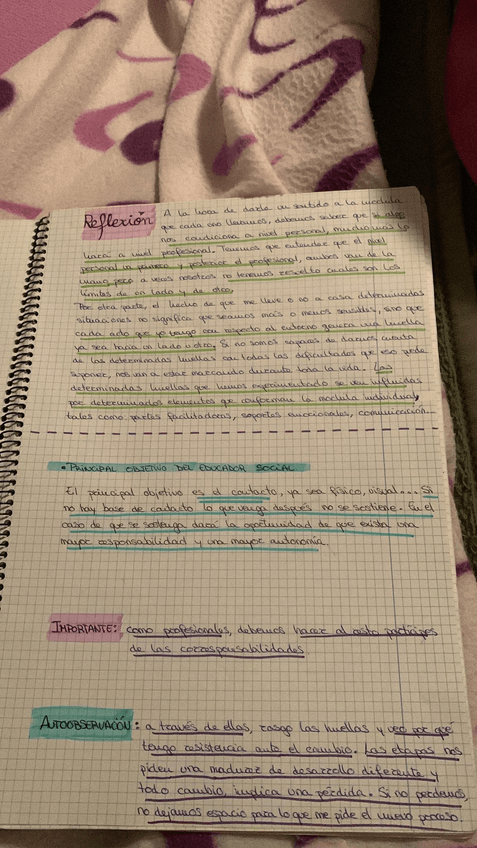 Reflexión A la hora de darle un sentido a la mochila
que cada uno llevamos, debemos saber que si algo
nos condiciona a nivel personal, mucho más lo
hará a nivel profesional. Tenemos que entender que el nivel
personal va primero y posterior el profesional, ambos van de la
mano, pero a veces nosotros no tenemos resuelto cuales son los
límites de un lado y de otro.
Por otra parte, el hecho de que me lleve o no a casa determinadas
situaciones no significa que seamos más o menos sensibles, sino que
cada acto que yo tengo con respecto al entorno genera una huella
ya sea hacia un lado u otro. Si no somos capaces de darnos cuenta
de las determinadas huellas con todas las dificultades que eso puede
suponer, nos van a estar marcando durante toda la vida. Las
determinadas huellas que hemos experimentado se ven influidas
por determinados elementos que conforman la mochila individual,
tales como partes facilitadoras, soportes emocionales, comunicación...
• PRINCIPAL OBJETIVO DEL EDUCADOR SOCIAL
El principal objetivo es el contacto, ya sea físico, visual... Si
no hay base de contacto lo que venga después no se sostiene. En el
caso de que se sostenga dará la oportunidad de que exista una
mayor responsabilidad y una mayor autonomía.
IMPORTANTE: como profesionales, debemos hacer al resto partícipes
de las corresponsabilidades
AUTOOBSERVACIÓN: a través de ellas, rasgo las huellas y veo por qué
tengo resistencia ante el cambio. Las etapas nos
piden una madurez de desarrollo diferente y
todo cambio, implica una pérdida. Si no perdemos,
no dejamos espacio para lo que me pide el nuevo proceso.